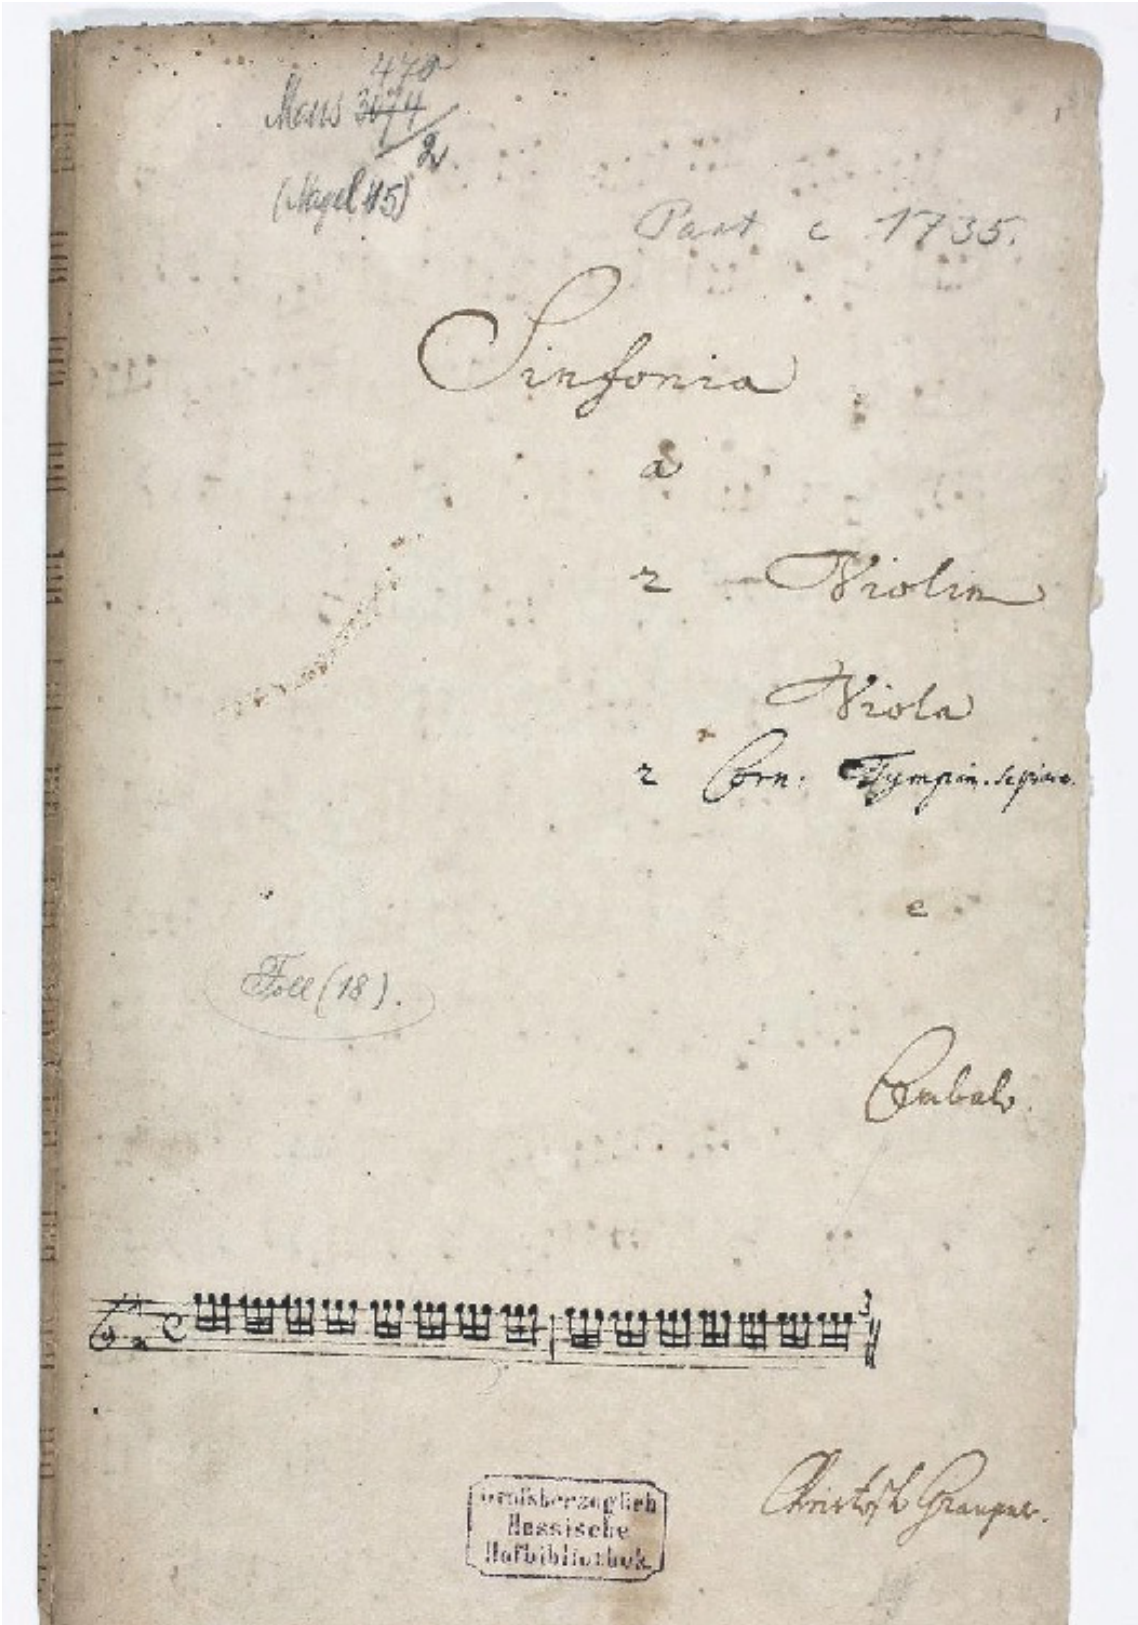 470
Mus 3074
2
(Nagel 115)
Part c 1735.
Sinfonia
a
2 Violin
Viola
2 Corn: Tympan.
e
Foll (18).
Cembalo.
Großherzoglich
Hessische
Hofbibliothek.
Christoph Graupner.